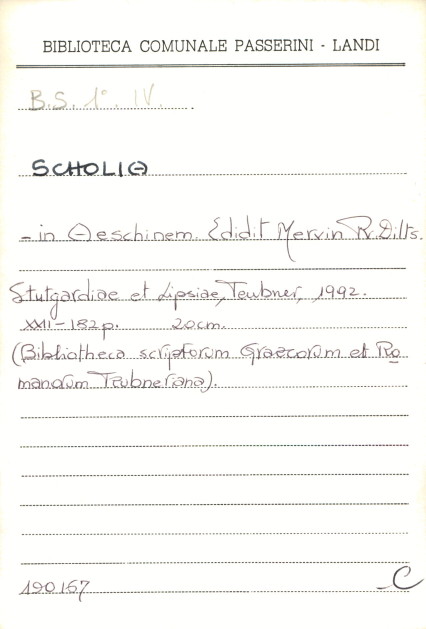 BIBLIOTECA COMUNALE PASSERINI - LANDI
B.S. 1°. IV.
SCHOLIA
- in Aeschinem. Edidit Mervin R. Dilts.
Stutgardiae et Lipsiae, Teubner, 1992.
XXII-182 p. 20 cm.
(Bibliotheca scriptorum Graecorum et Ro
manorum Teubneriana).
190157
C